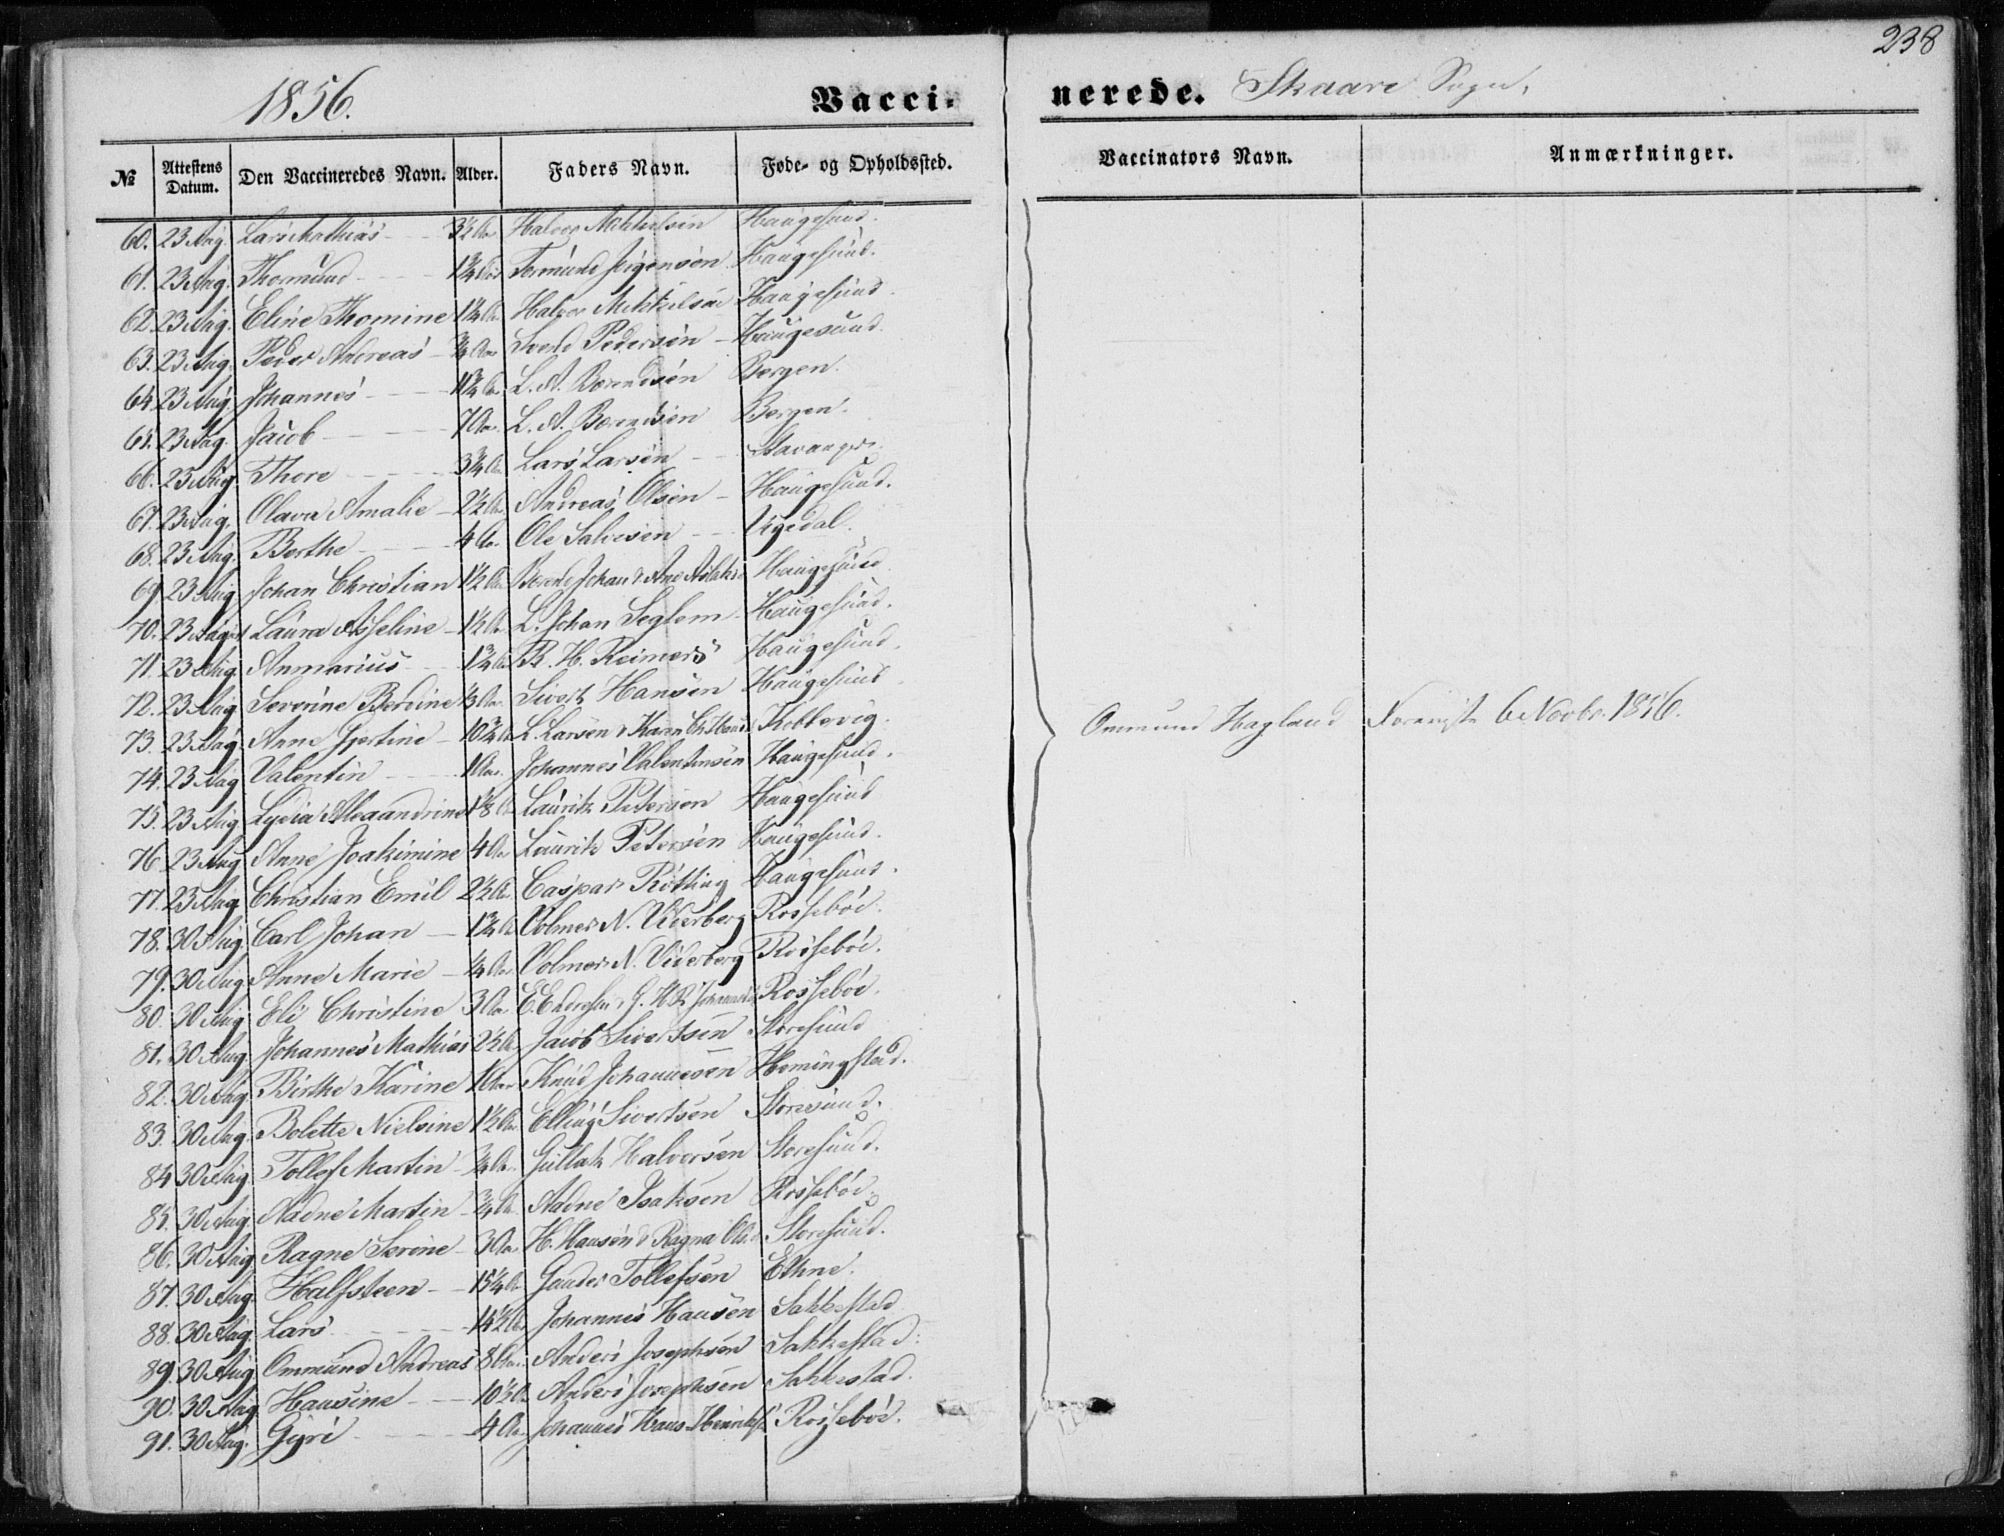 238
1856.
Vacci-
nerede. Skaare Sogn.
№ Attestens Datum. Den Vaccineredes Navn. Alder. Faders Navn. Føde- og Opholdssted. Vaccinators Navn. Anmærkninger.
60. 23 Aug. Lars Mathias 3½ Aar Halvor Mikkelsen Haugesund.
61. 23 Aug. Thormund 1¾ Aar Tormund Jørgensen Haugesund.
62. 23 Aug. Eline Thomine 1¼ Aar Halvor Mikkelsen Haugesund
63. 23 Aug. Peder Andreas ¾ Aar Svend Pedersen Haugesund.
64. 23 Aug. Johannes L. A. Berendsen Bergen.
65. 23 Aug. Jacob 7 Aar. L. A. Berendsen Bergen.
66. 23 Aug. Thore 3¾ Aar Lars Larsen Stavanger
67. 23 Aug. Olava Amalie 2½ Aar Andreas Olsen Haugesund.
68. 23 Aug. Berthe 4 Aar. Ole Salvesen
69. 23 Aug. Johan Christian 1½ Aar Berend Johan & Ane Haugesund
70. 23 August Laura Asseline 1½ Aar L. Johan Seglem Haugesund.
71. 23 Aug. Anmarius 1¾ Aar B. H. Reimers Haugesund.
72. 23 Aug. Severine Berdine Aar. Sivert Hansen Haugesund
73. 23 Aug. Anne Gjertine 10¾ L. Larsen & Karen Kobbevig.
74. 23 Aug. Valentin 1 Aar. Johannes Valentinsen Haugesund.
75. 23 Aug Lydia Alexandrine 1⅛ Lauritz Petersen Haugesund
76. 23 Aug. Anne Joakimine 4 Aar Lauritz Petersen Haugesund.
77. 23 Aug Christian Emil 2½ Aar Caspar Røtting Haugesund.
78. 30 Aug. Carl Johan 1¾ Aar Volmer N. Viderberg Rossebøe.
79. 30 Aug. Anne Marie ¼ Aar Volmer N. Viderberg Rossebøe.
80. 30 Aug. Eli Christine 3 Aar E. Endresen Rossebøe.
81. 30 Aug. Johannes Mathias 2½ Aar Jacob Sivertsen Storesund
82. 30 Aug. Birthe Karine 1 Aar Knud Johannesen Hemingstad.
83. 30 Aug. Bolette Nielsine 1½ Aar Elling Sivertsen Storesund.
84. 30 Aug. Tollef Martin ¾ Aar Gullak Halvorsen Storesund.
85. 30 Aug. Aadne Martin ¾ Aar Aadne Isaksen Rossebøe
86. 30 Aug. Ragne Serine 3 Aar H. Hansen & Ragna Olsd. Storesund.
87. 30 Aug. Halfsteen 15¼ Aar Gunder Tollefsen Ethne.
88. 30 Aug. Lars 14½ Aar Johannes Hansen Sakkestad
89. 30 Aug. Ommund Andreas 8 Aar. Anders Josephsen Sakkestad.
90. 30 Aug. Hansine 10½ Aar Anders Josephsen Sakkestad.
91. 30 Aug. Gyri 4 Aar Johannes Hans Henriksen Rossebøe.
Ommund Hagland
6 Novbr. 1856.